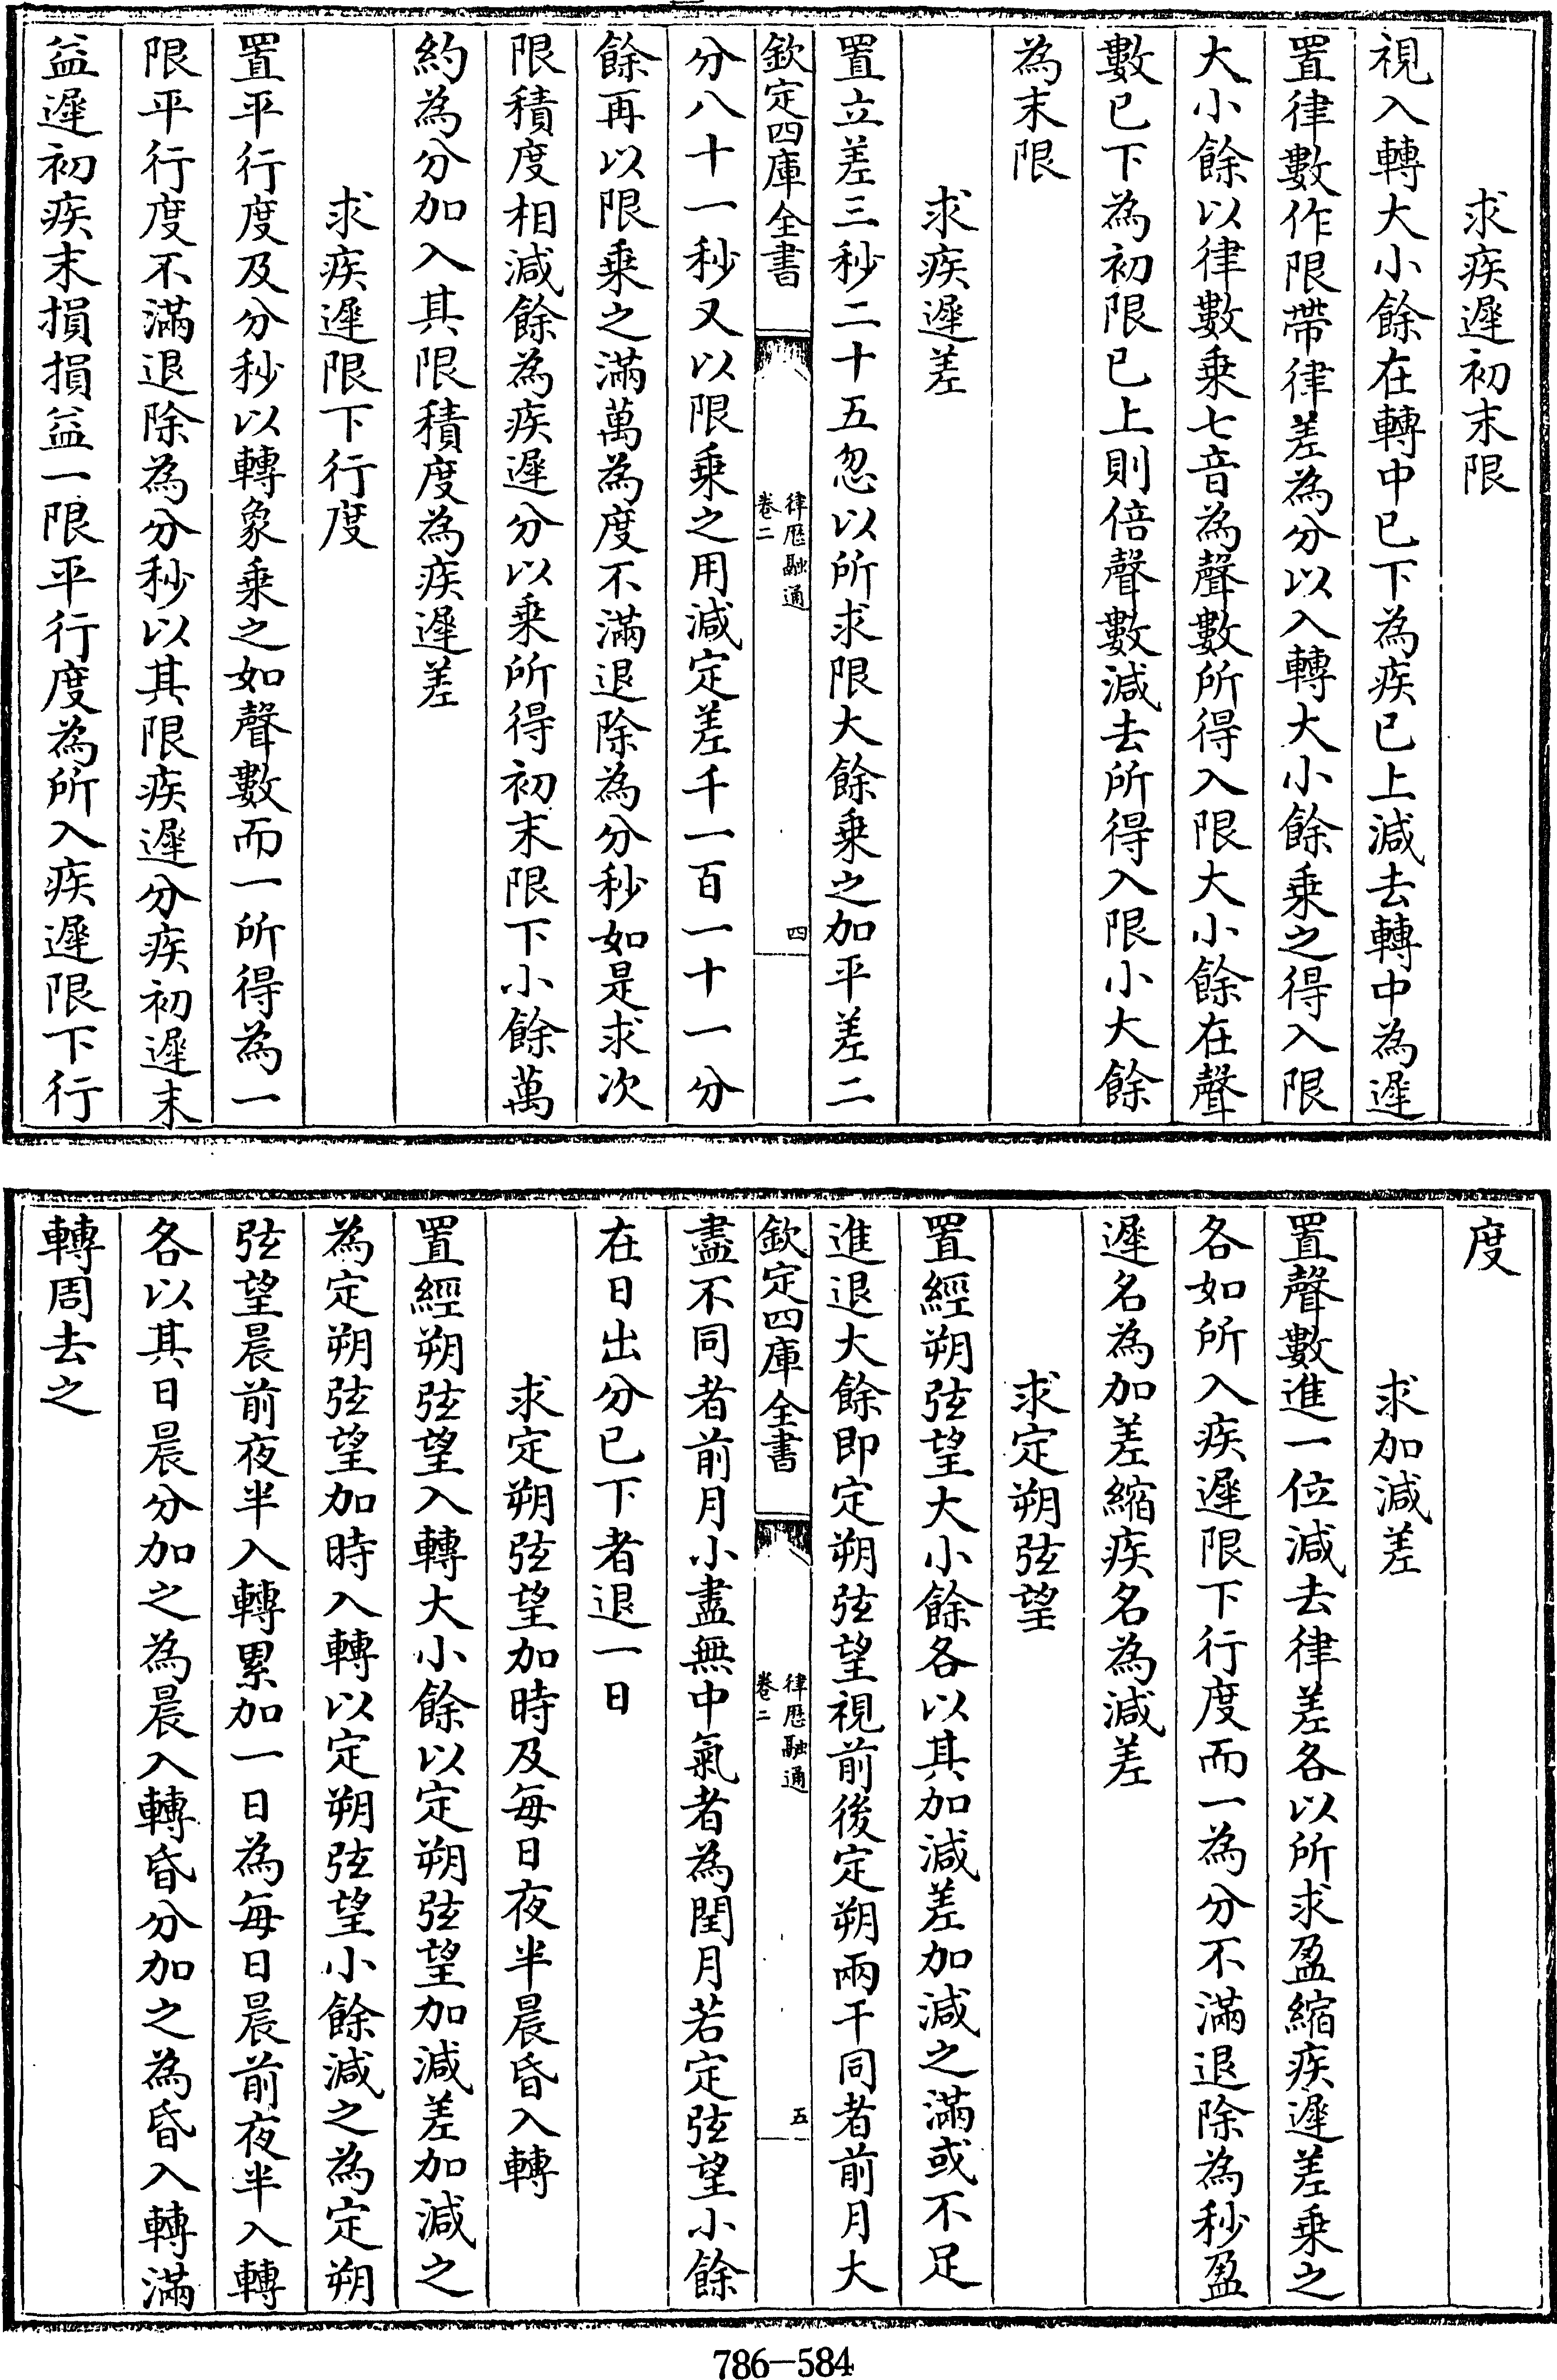 求疾遲初末限
視入轉大小餘在轉中已下為疾已上減去轉中為遲
置律數作限帶律差為分以入轉大小餘乗之得入限
大小餘以律數乗七音為聲數所得入限大小餘在聲
數已下為初限已上則倍聲數減去所得入限小大餘
為末限
求疾遲差
置立差三秒二十五忽以所求限大餘乗之加平差二
欽定四庫全書
律厯融通
卷二
四
分八十一秒又以限乗之用減定差千一百一十一分
餘再以限乗之滿萬為度不滿退除為分秒如是求次
限積度相減餘為疾遲分以乗所得初末限下小餘萬
約為分加入其限積度為疾遲差
求疾遲限下行度
置平行度及分秒以轉象乗之如聲數而一所得為一
限平行度不滿退除為分秒以其限疾遲分疾初遲末
益遲初疾末損損益一限平行度為所入疾遲限下行
度
求加減差
置聲數進一位減去律差各以所求盈縮疾遲差乗之
各如所入疾遲限下行度而一為分不滿退除為秒盈
遲名為加差縮疾名為減差
求定朔弦望
置經朔弦望大小餘各以其加減差加減之滿或不足
進退大餘即定朔弦望視前後定朔兩干同者前月大
欽定四庫全書
律厯融通
卷二
五
盡不同者前月小盡無中氣者為閏月若定弦望小餘
在日出分已下者退一日
求定朔弦望加時及每日夜半晨昏入轉
置經朔弦望入轉大小餘以定朔弦望加減差加減之
為定朔弦望加時入轉以定朔弦望小餘減之為定朔
弦望晨前夜半入轉累加一日為每日晨前夜半入轉
各以其日晨分加之為晨入轉昏分加之為昏入轉滿
轉周去之
786-584